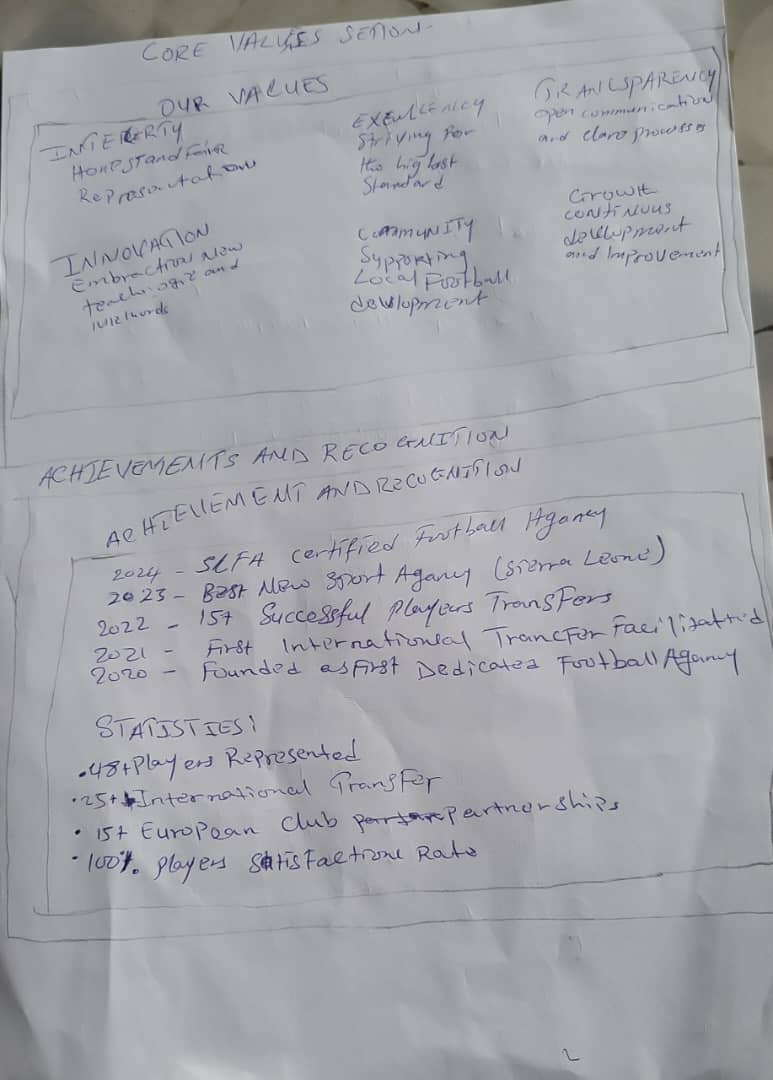 CORE VALUES SETION
OUR VALUES
INTEKERTY
Honest and Faire
Representation
EXCELLENCY
Striving for
the highest
Standard
TRANCSPARENCY
open communication
and clare processes
INNOVATION
Embraction New
and
COMMUNITY
Supporting
Local Football
development
Growth
continuous
development
and Improvement
ACHIEVEMENTS AND RECOGNITION
ACHIEVEMENT AND RECOGNITION
2024 - SLFA certified Football Agancy
2023 - Best New Sport Agancy (Sierra Leone)
2022 - 15+ Successful Players Transfers
2021 - First Internationsal Trancfer Facilitattid
2020 - Founded as First Dedicated Football Agancy
STATISTIES:
• 48+ Players Represented
• 25+ International Transfer
• 15+ European Club Partnerships
• 100% players Satisfactione Rate
2